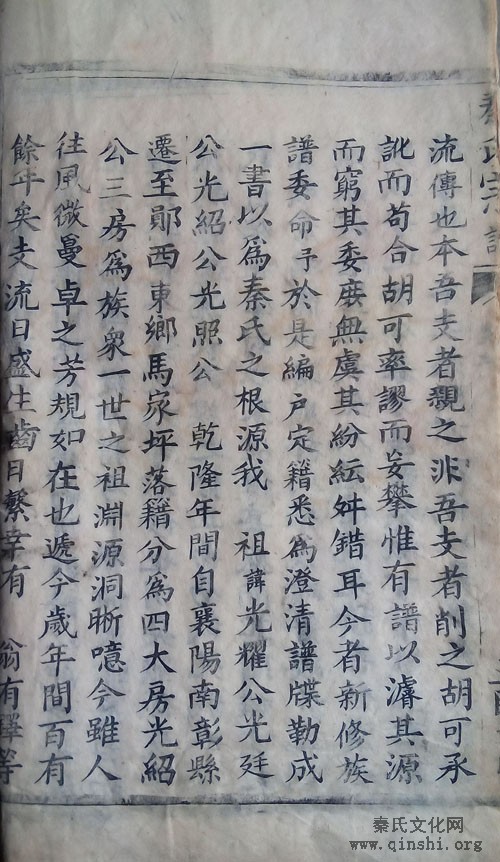 秦氏宗譜
流傳也本吾支者親之非吾支者削之胡可承
訛而苟合胡可率謬而妄攀惟有譜以濬其源
而窮其委庶無虞其紛紜舛錯耳今者新修族
譜委命予於是編戶定籍悉為澄清譜牒勒成
一書以為秦氏之根源我 祖諱光耀公光廷
公光紹公光照公 乾隆年間自襄陽南彰縣
遷至鄖西東鄉馬家坪落籍分為四大房光紹
公三房為族衆一世之祖淵源洞晰噫今雖人
往風微曼卓之芳規如在也遞今歲年間百有
餘年矣支流日盛生齒日繫幸有 翁有鐸等
秦氏文化网
www.qinshi.org